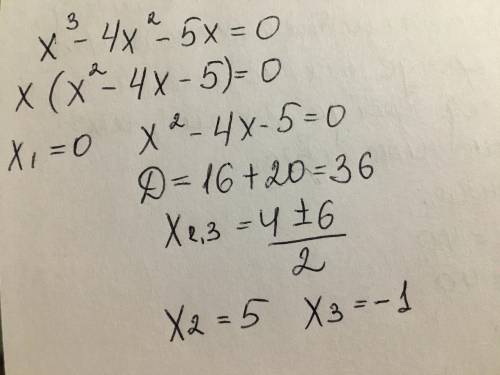 x³ - 4x² - 5x = 0
x (x² - 4x - 5) = 0
x₁ = 0 x² - 4x - 5 = 0
Д = 16 + 20 = 36
x₂,₃ = 4 ± 6
2
x₂ = 5 x₃ = -1